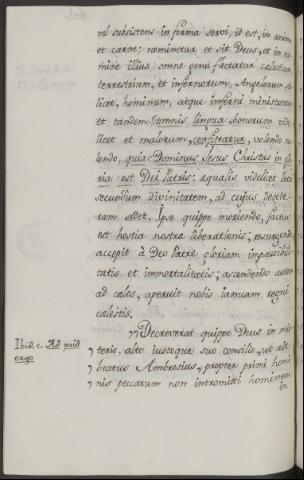 vel subsistens in forma servi, id est, in anima
et carne; nominetur et sit Deus, et in no-
mine illius omne genu flectatur cœlestium
terrestrium, et infernorum, Angelorum sci-
licet, hominum, atque inferni ministrorum
et tandem omnis lingua, bonorum vide-
licet et malorum, confiteatur, volendo no-
lendo, quia Dominus Jesus Christus in glo-
ria est Dei Patris: æqualis videlicet Patri
secundum divinitatem, ad cujus dexte-
ram sedet. Ipse quippe moriendo, factus
est hostia nostræ liberationis; resurgendo
accepit à Deo Patre gloriam impassibili-
tatis et immortalitatis; ascendendo autem
ad cœlos, aperuit nobis ianuam regni
cœlestis.
Decreverat quippe Deus in mis-
terio, alto iustoque suo consilio, ut ait
Ibid. c. Ad quid
ergo
beatus Ambrosius, propter primi homi-
nis peccatum non intromitti hominem
in